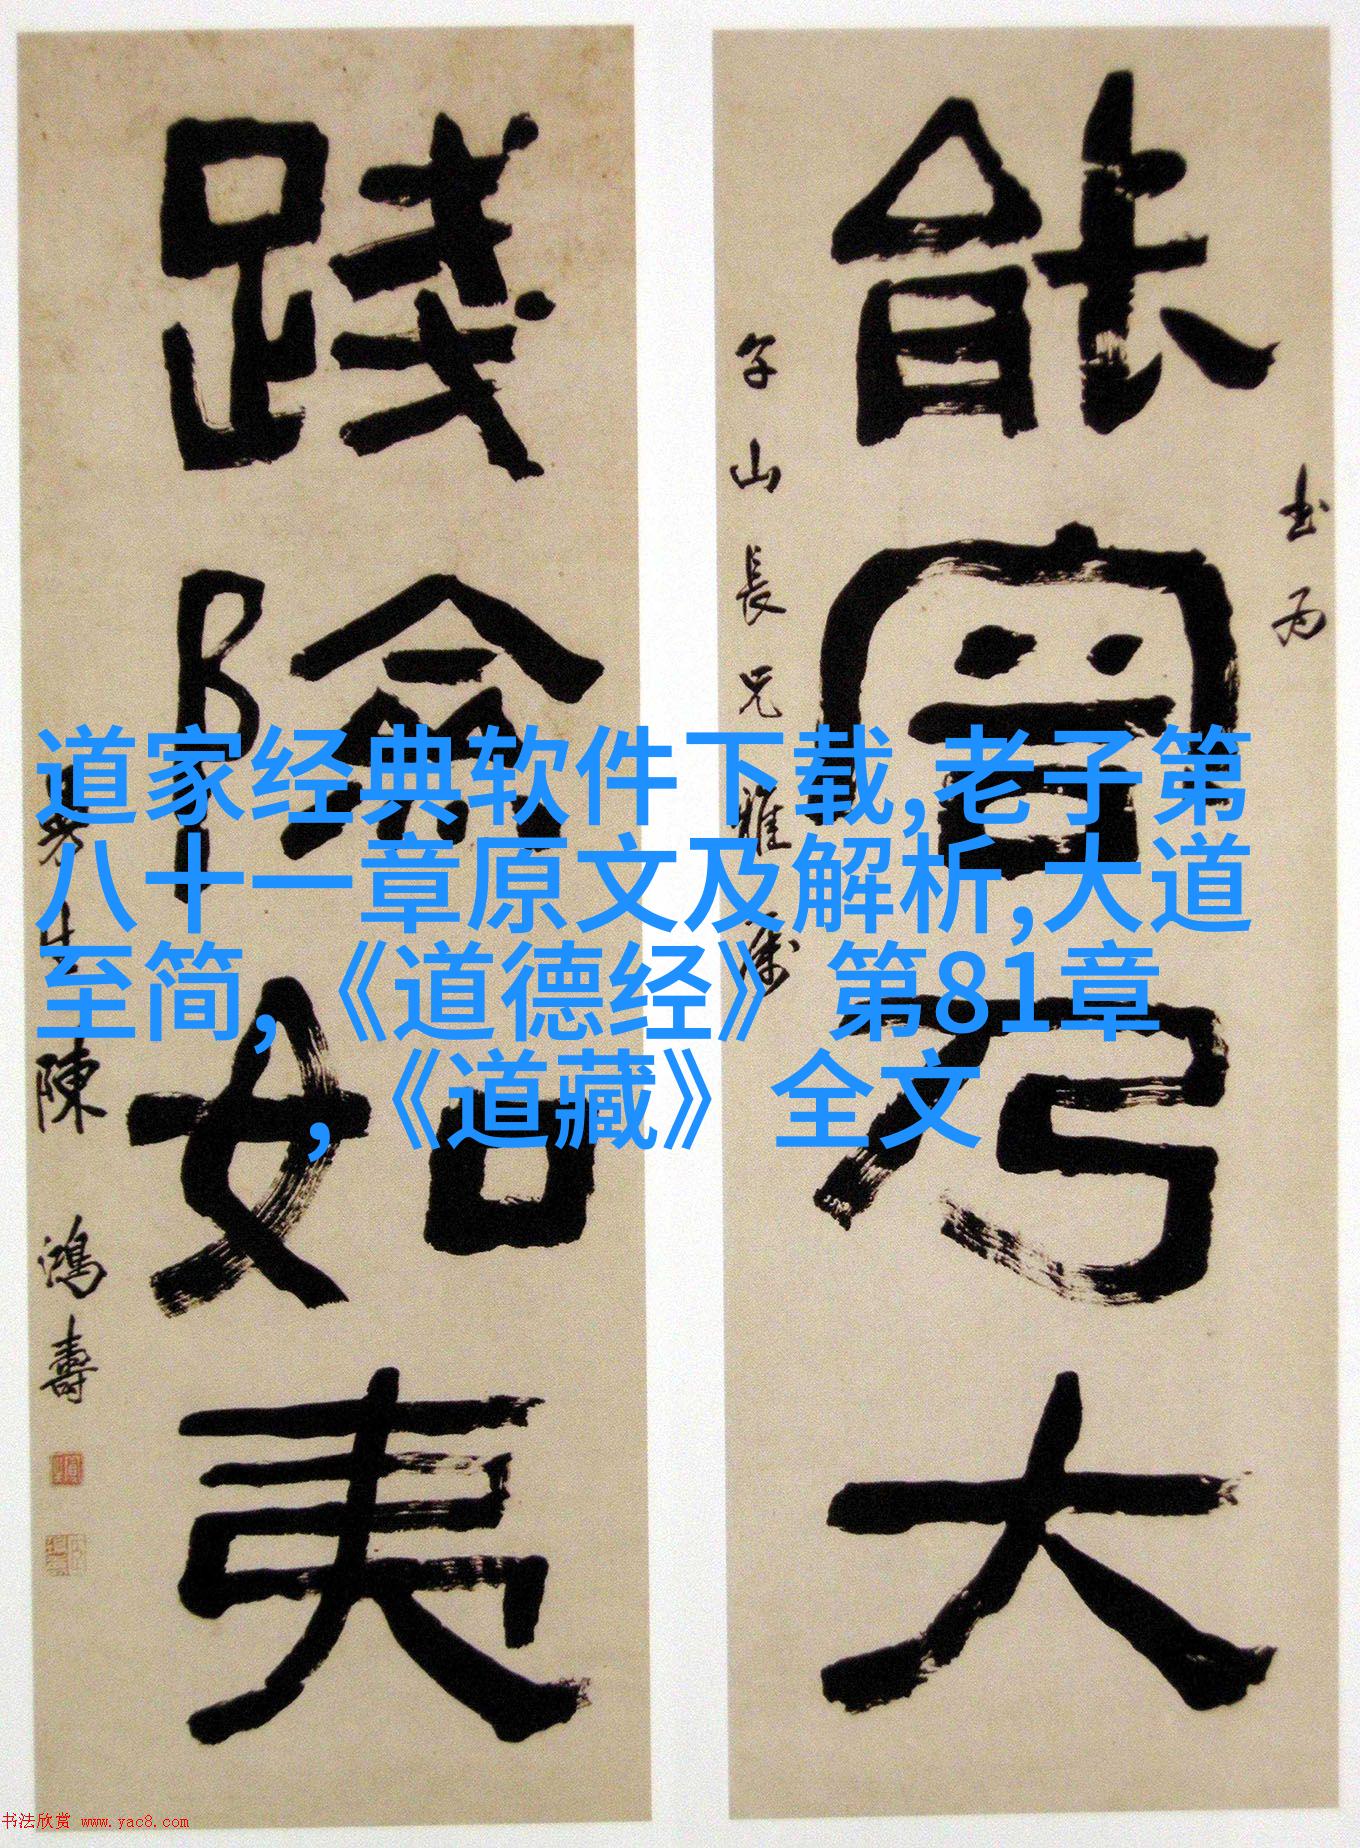 道家经典软件下载,老子第
八十一章原文及解析,大道
至简,《道德经》第81章
,《道藏》全文
書為
能容乃大
山長兄雅屬
踐險如夷
曼生陳鴻壽
书法欣赏 www.yac8.com